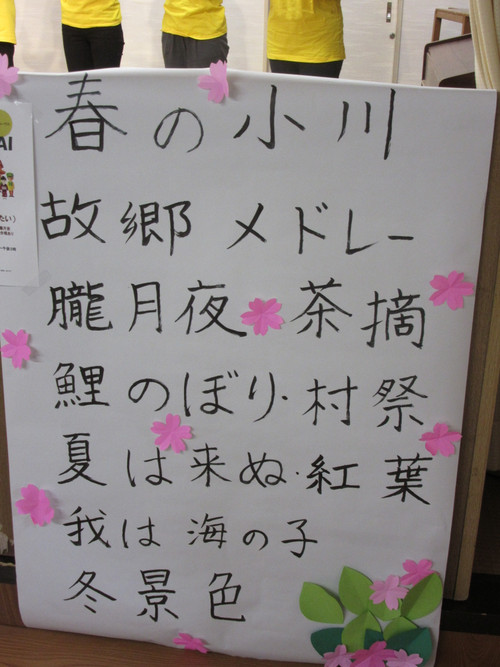 春の小川
故郷メドレー
朧月夜 茶摘
鯉のぼり・村祭
夏は来ぬ・紅葉
我は海の子
冬景色
AI
たい)